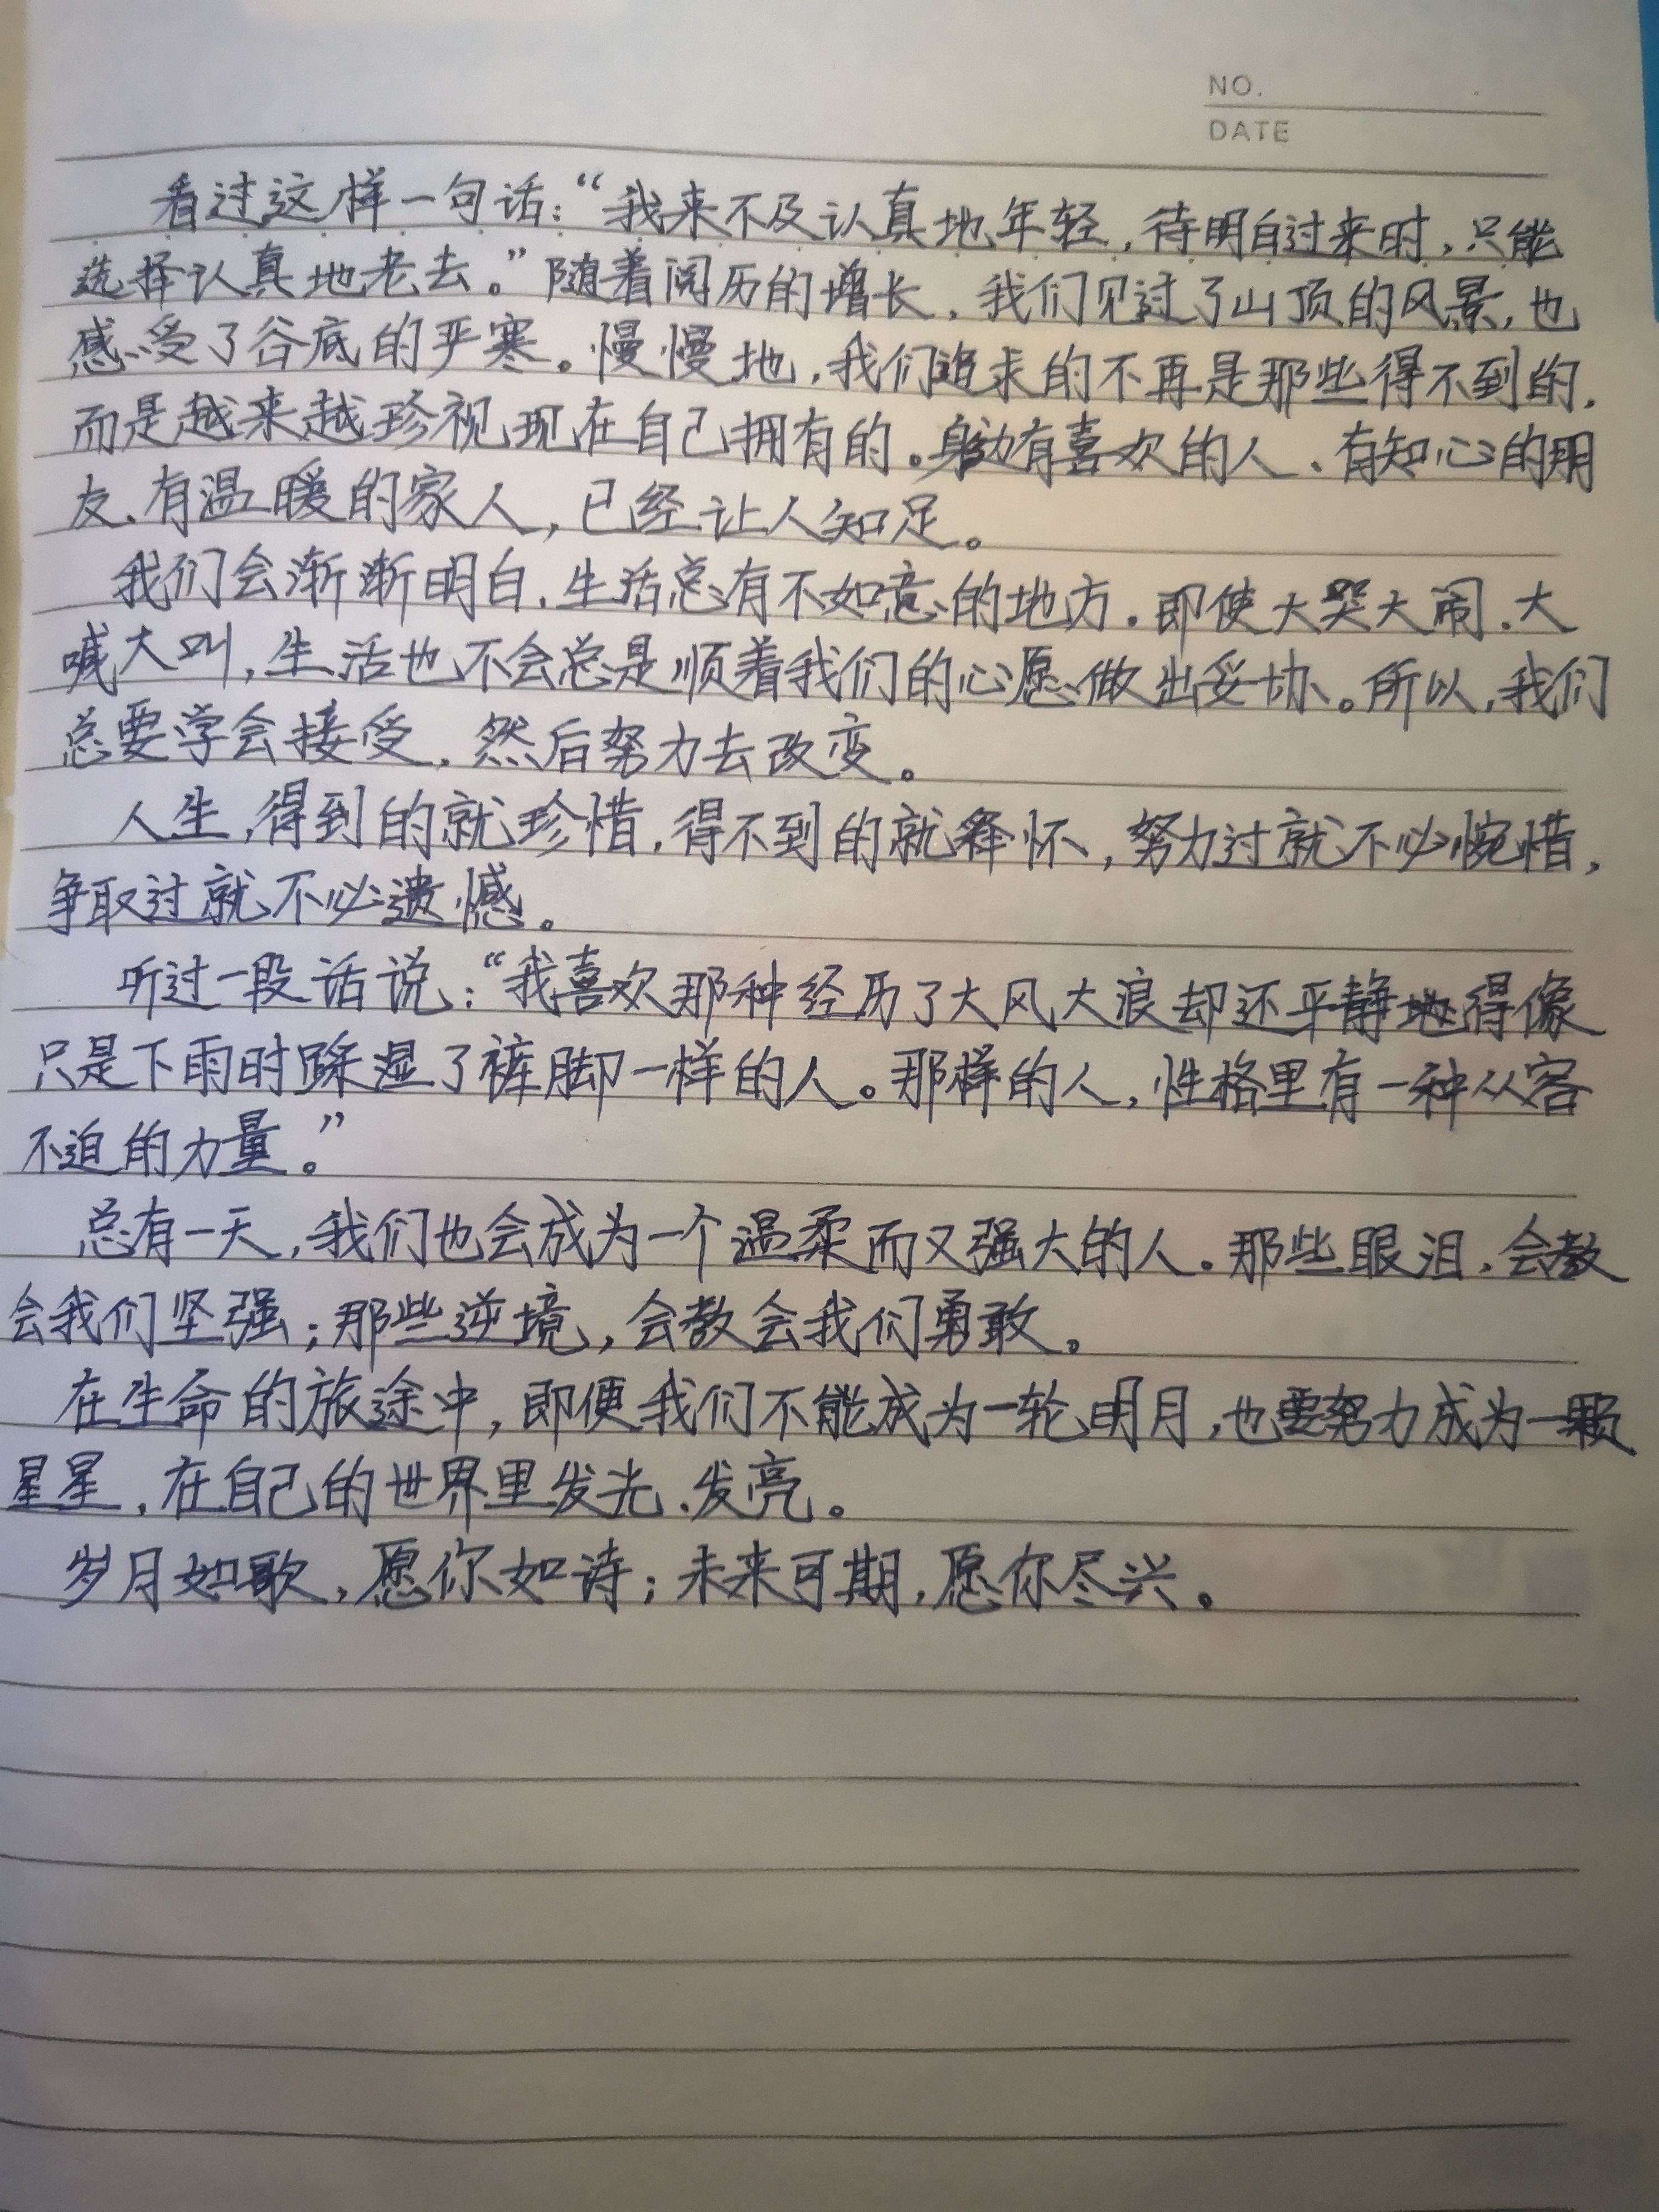 NO.
DATE
看过这样一句话：“我来不及认真地年轻，待明白过来时，只能
选择认真地老去。”随着阅历的增长，我们见过了山顶的风景，也
感受了谷底的严寒。慢慢地，我们追求的不再是那些得不到的，
而是越来越珍视现在自己拥有的。身边有喜欢的人、有知心的朋
友、有温暖的家人，已经让人知足。
我们会渐渐明白，生活总有不如意的地方。即使大哭大闹、大
喊大叫，生活也不会总是顺着我们的心愿做出妥协。所以，我们
总要学会接受，然后努力去改变。
人生，得到的就珍惜，得不到的就释怀，努力过就不必惋惜，
争取过就不必遗憾。
听过一段话说：“我喜欢那种经历了大风大浪却还平静地得像
只是下雨时踩湿了裤脚一样的人。那样的人，性格里有一种从容
不迫的力量。”
总有一天，我们也会成为一个温柔而又强大的人。那些眼泪，会教
会我们坚强；那些逆境，会教会我们勇敢。
在生命的旅途中，即便我们不能成为一轮明月，也要努力成为一颗
星星，在自己的世界里发光、发亮。
岁月如歌，愿你如诗；未来可期，愿你尽兴。